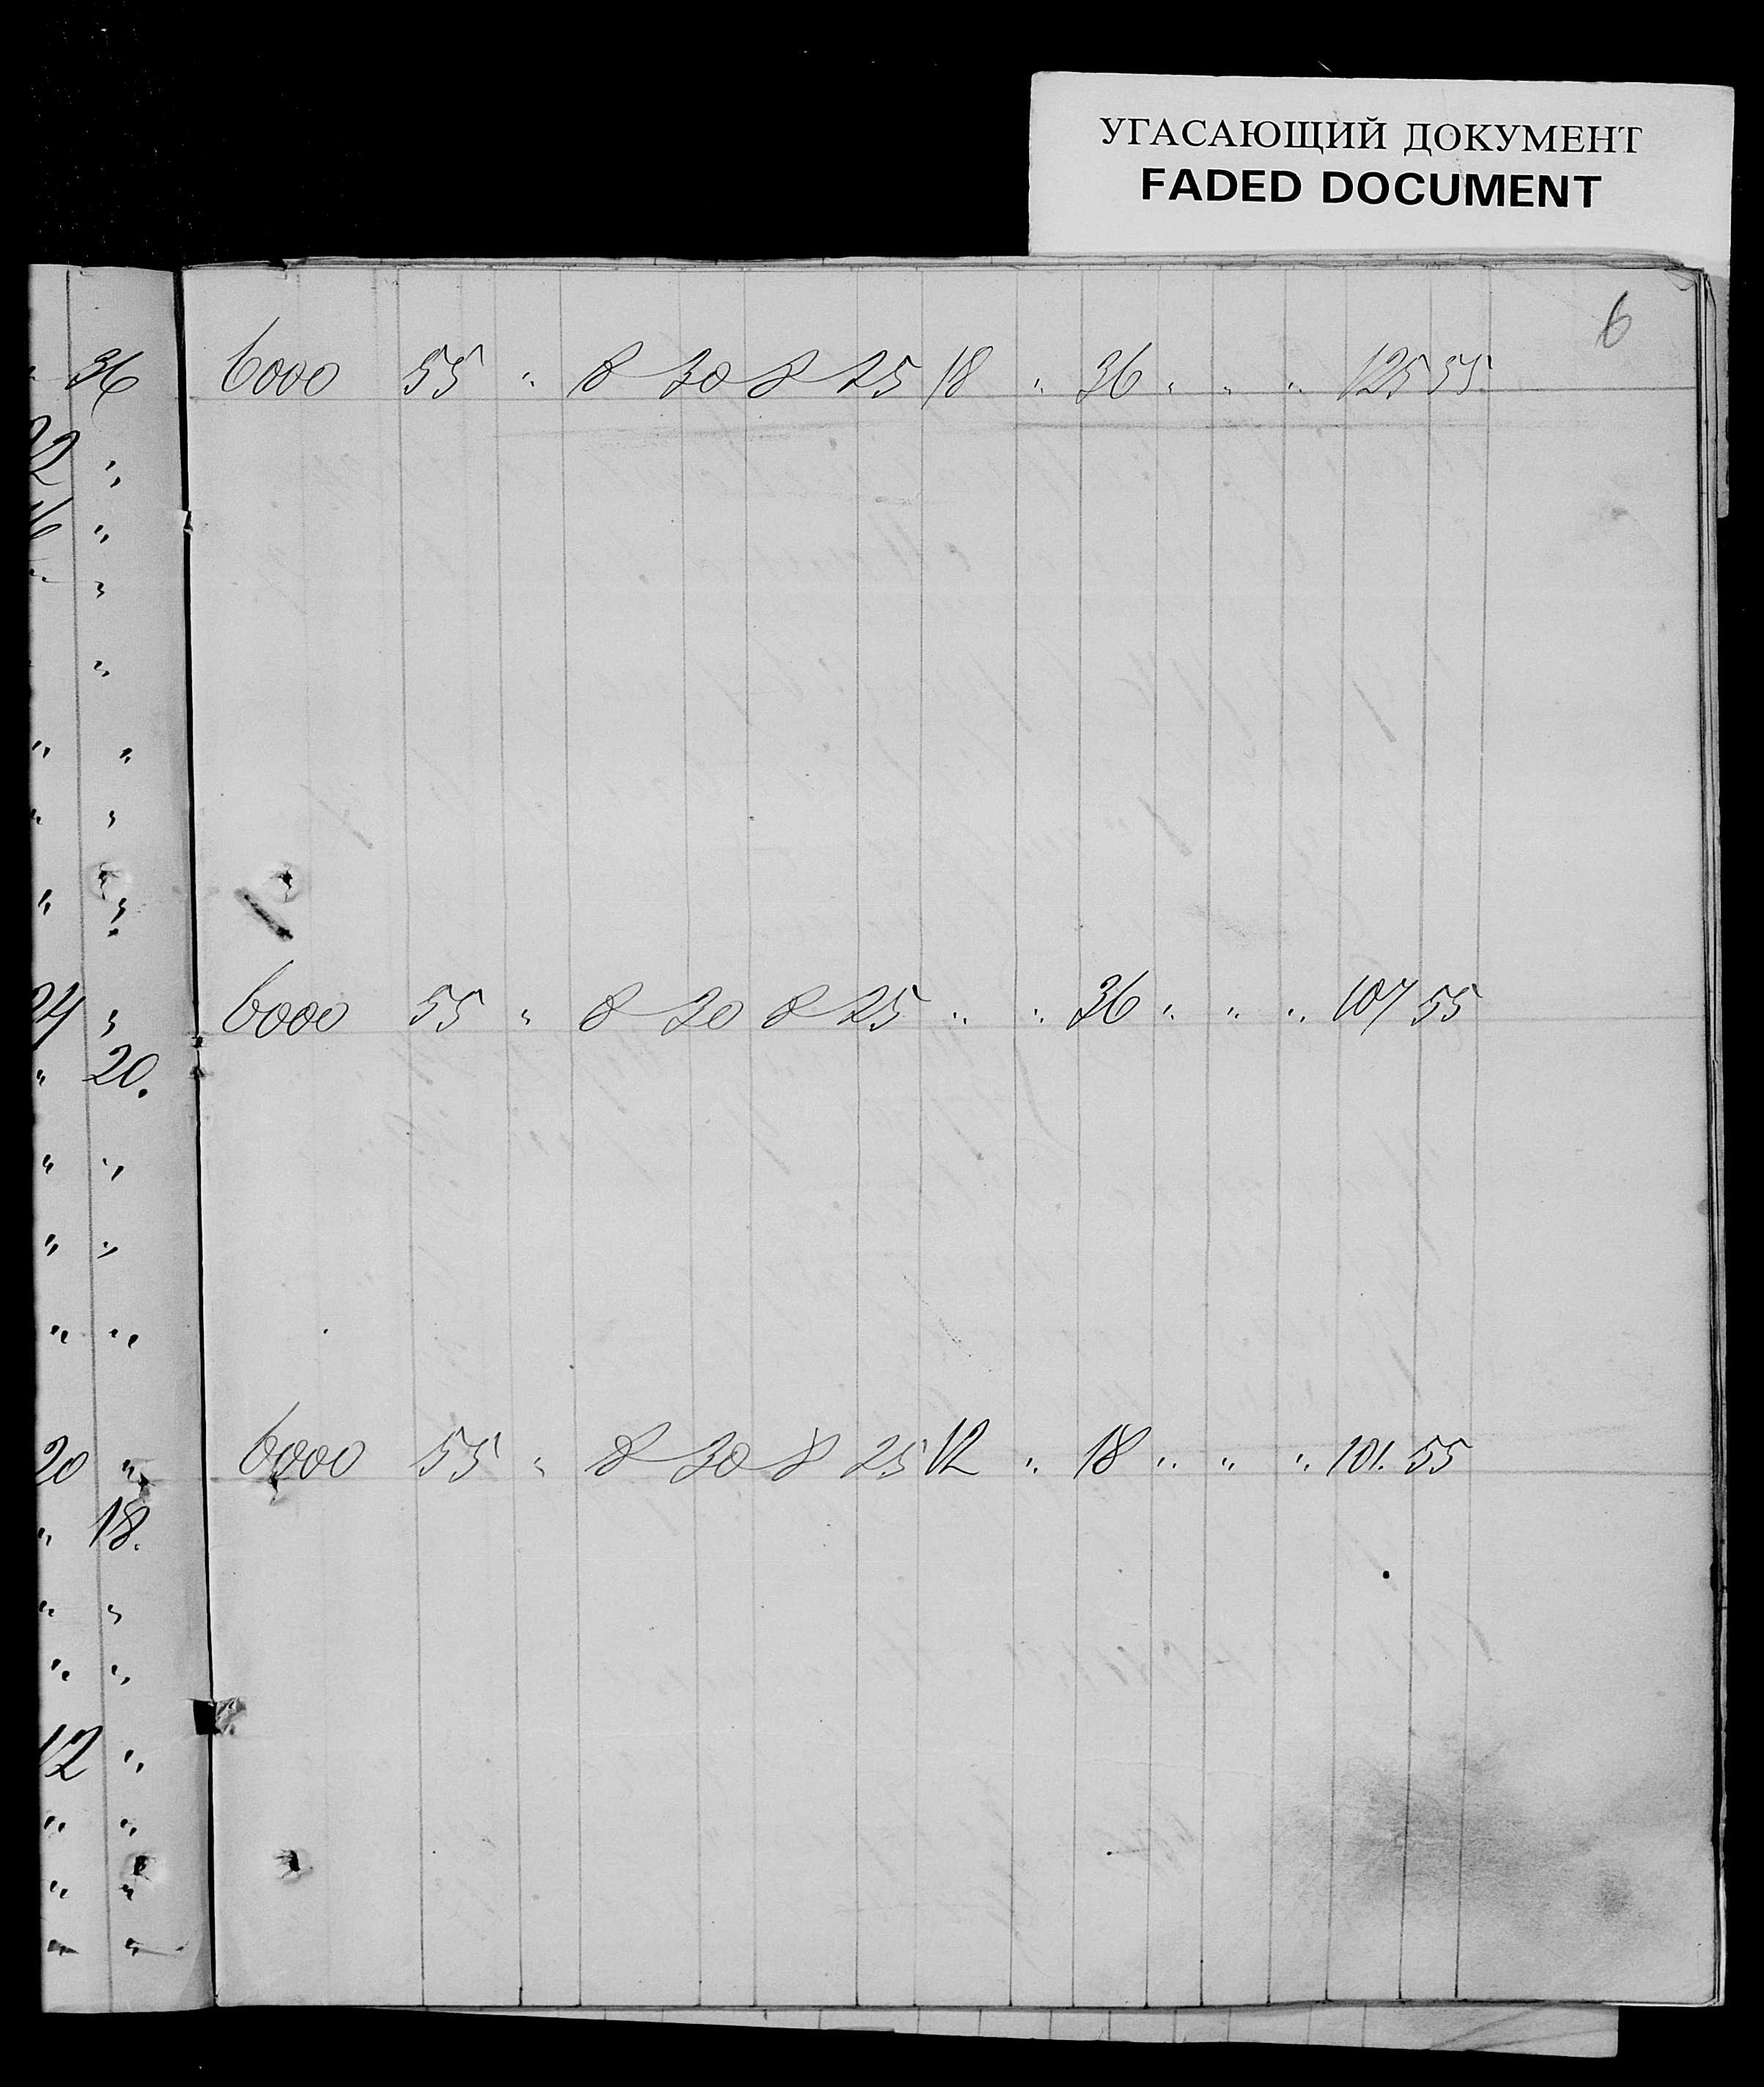 УГАСАЮЩИЙ ДОКУМЕНТ
FADED DOCUMENT
6
36
6000 55 " 8 30 8 25 18 " 36 " " " 125 55.
22 "
16 "
" "
"
" "
" "
" "
24 "
6000 55 " 8 30 8 25 " " 36 " " " 107 55
" 20.
" "
" "
" "
20 "
6000 55 " 8 30 8 25 12 " 18 " " " 101. 55
" 18.
" "
" "
12 "
" "
" "
" "